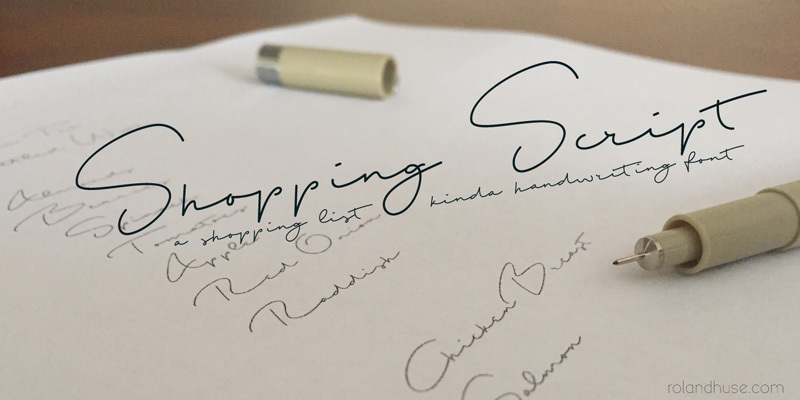 Shopping Script
a shopping list kinda handwriting font
Tomatoes
Apples
Red Onion
Raddish
Chicken Breast
Salmon
rolandhuse.com